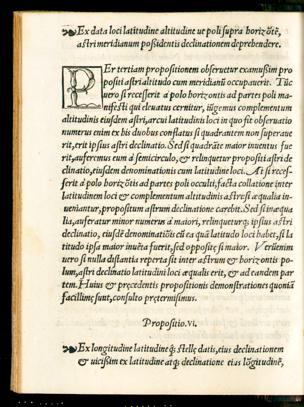 ❧Ex data loci latitudine altitudine ue poli supra horizõtẽ,
astri meridianum possidentis declinationem deprehendere.
PEr tertiam propositionem obseruetur examussim pro
positi astri altitudo cum meridianũ occupauerit. Tũc
uero si recesserit à polo horizontis ad partes poli ma
nifesti qui eleuatus cernitur, iũgemus complementum
altitudinis eiusdem astri, arcui latitudinis loci in quo fit obseruatio
numerus enim ex his duobus conflatus si quadrantem non superaue
rit, erit ipsius astri declinatio. Sed si quadrãte maior inuentus fue
rit, auferemus eum à semicirculo, & relinquetur propositi astri de
clinatio, eiusdem denominationis cum latitudine loci. At si reces-
serit à polo horizõtis ad partes poli occulti, facta collatione inter
latitudinem loci & complementum altitudinis astri si æqualia in-
ueniantur, propositum astrum declinatione carebit. Sed si inæqua
lia, auferatur minor numerus à maiori, relinqueturq; ipsius astri
declinatio, eiusdẽ denominatiõis cũ ea quã latitudo loci habet, si la
titudo ipsa maior inuẽta fuerit, sed oppositę si maior. Verũenim
uero si nulla distantia reperta sit inter astrum & horizontis po-
lum, astri declinatio latitudini loci æqualis erit, & ad eandem par
tem. Huius & pręcedentis propositionis demonstrationes quoniã
facillimę sunt, consulto prętermisimus.
Propositio.vi.
❧Ex longitudine latitudineq́; stellę datis, eius declinationem
& uicissim ex latitudine atq; declinatione eius lõgitudinẽ,